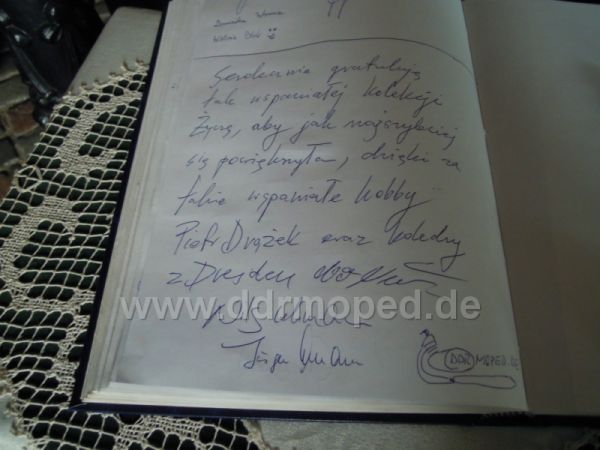 Serdecznie gratuluję
tak wspaniałej kolekcji
Życzę, aby jak najszybciej
się powiększyła, dzięki za
takie wspaniałe hobby
Piotr Drążek oraz koledzy
z Dresden
www.ddrmoped.de
Jürgen
DDRMOPED.DE